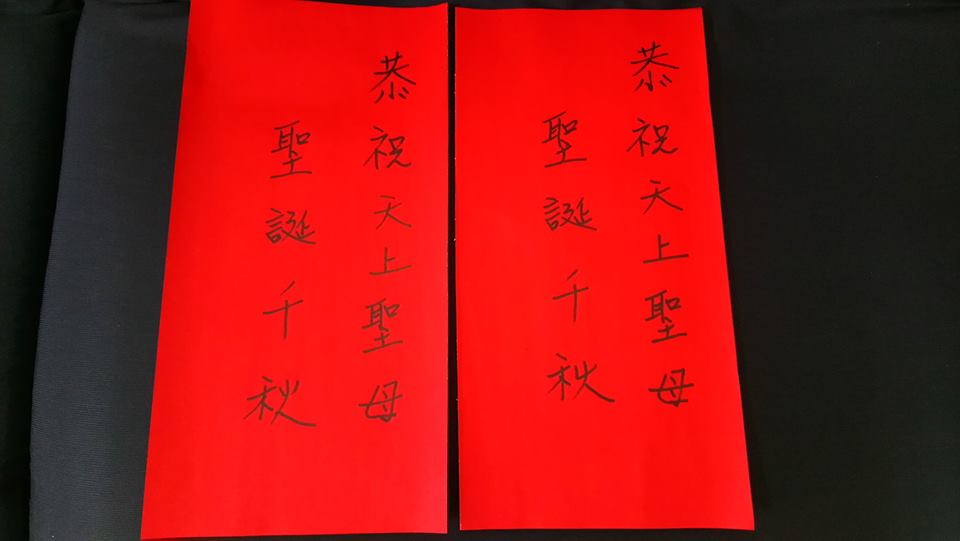 恭祝天上聖母
聖誕千秋
恭祝天上聖母
聖誕千秋